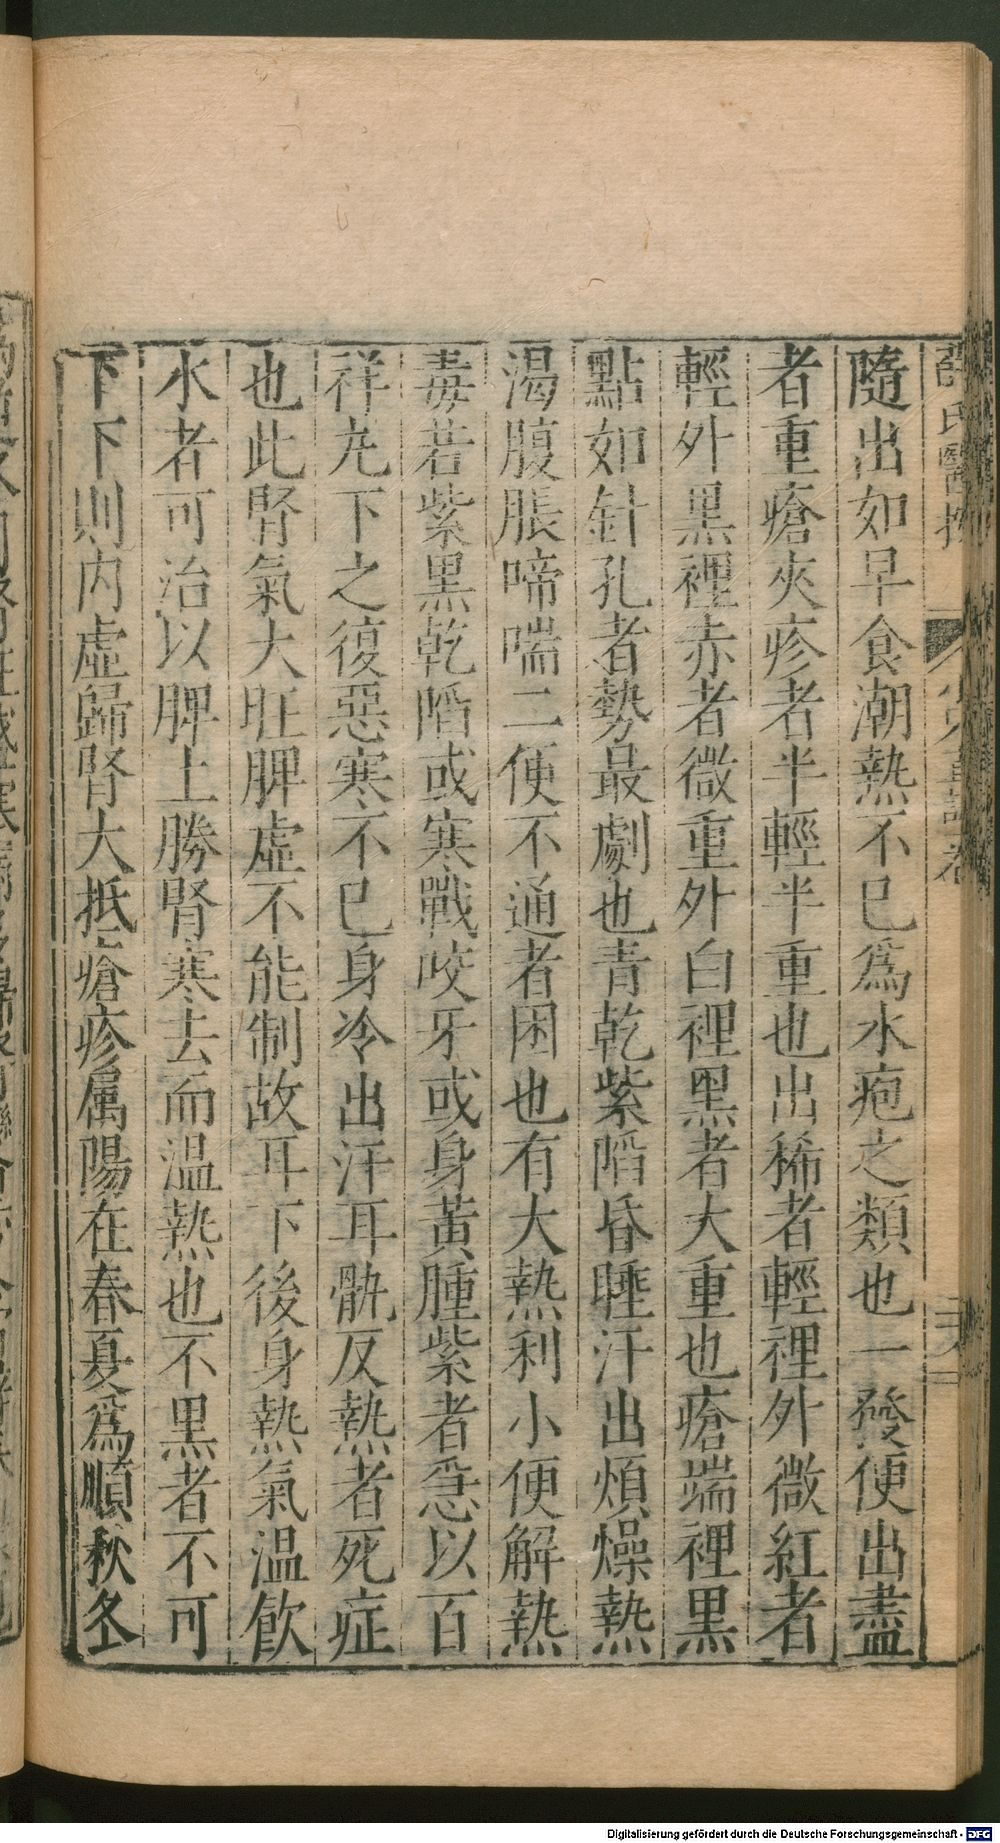 隨出如早食潮熱不已為水疱之類也一發便出盡
者重瘡夾疹者半輕半重也出稀者輕裡外微紅者
輕外黑裡赤者微重外白裡黑者大重也瘡端裡黑
點如針孔者勢最劇也青乾紫陷昏睡汗出煩燥熱
渴腹脹啼喘二便不通者困也有大熱利小便解熱
毒若紫黑乾陷或寒戰咬牙或身黃腫紫者急以百
祥丸下之復惡寒不已身冷出汗耳骩反熱者死症
也此腎氣大旺脾虛不能制故耳下後身熱氣溫飲
水者可治以脾土勝腎寒去而溫熱也不黑者不可
下下則內虛歸腎大抵瘡疹属陽在春夏為順秋冬
Digitalisierung gefördert durch die Deutsche Forschungsgemeinschaft - DFG